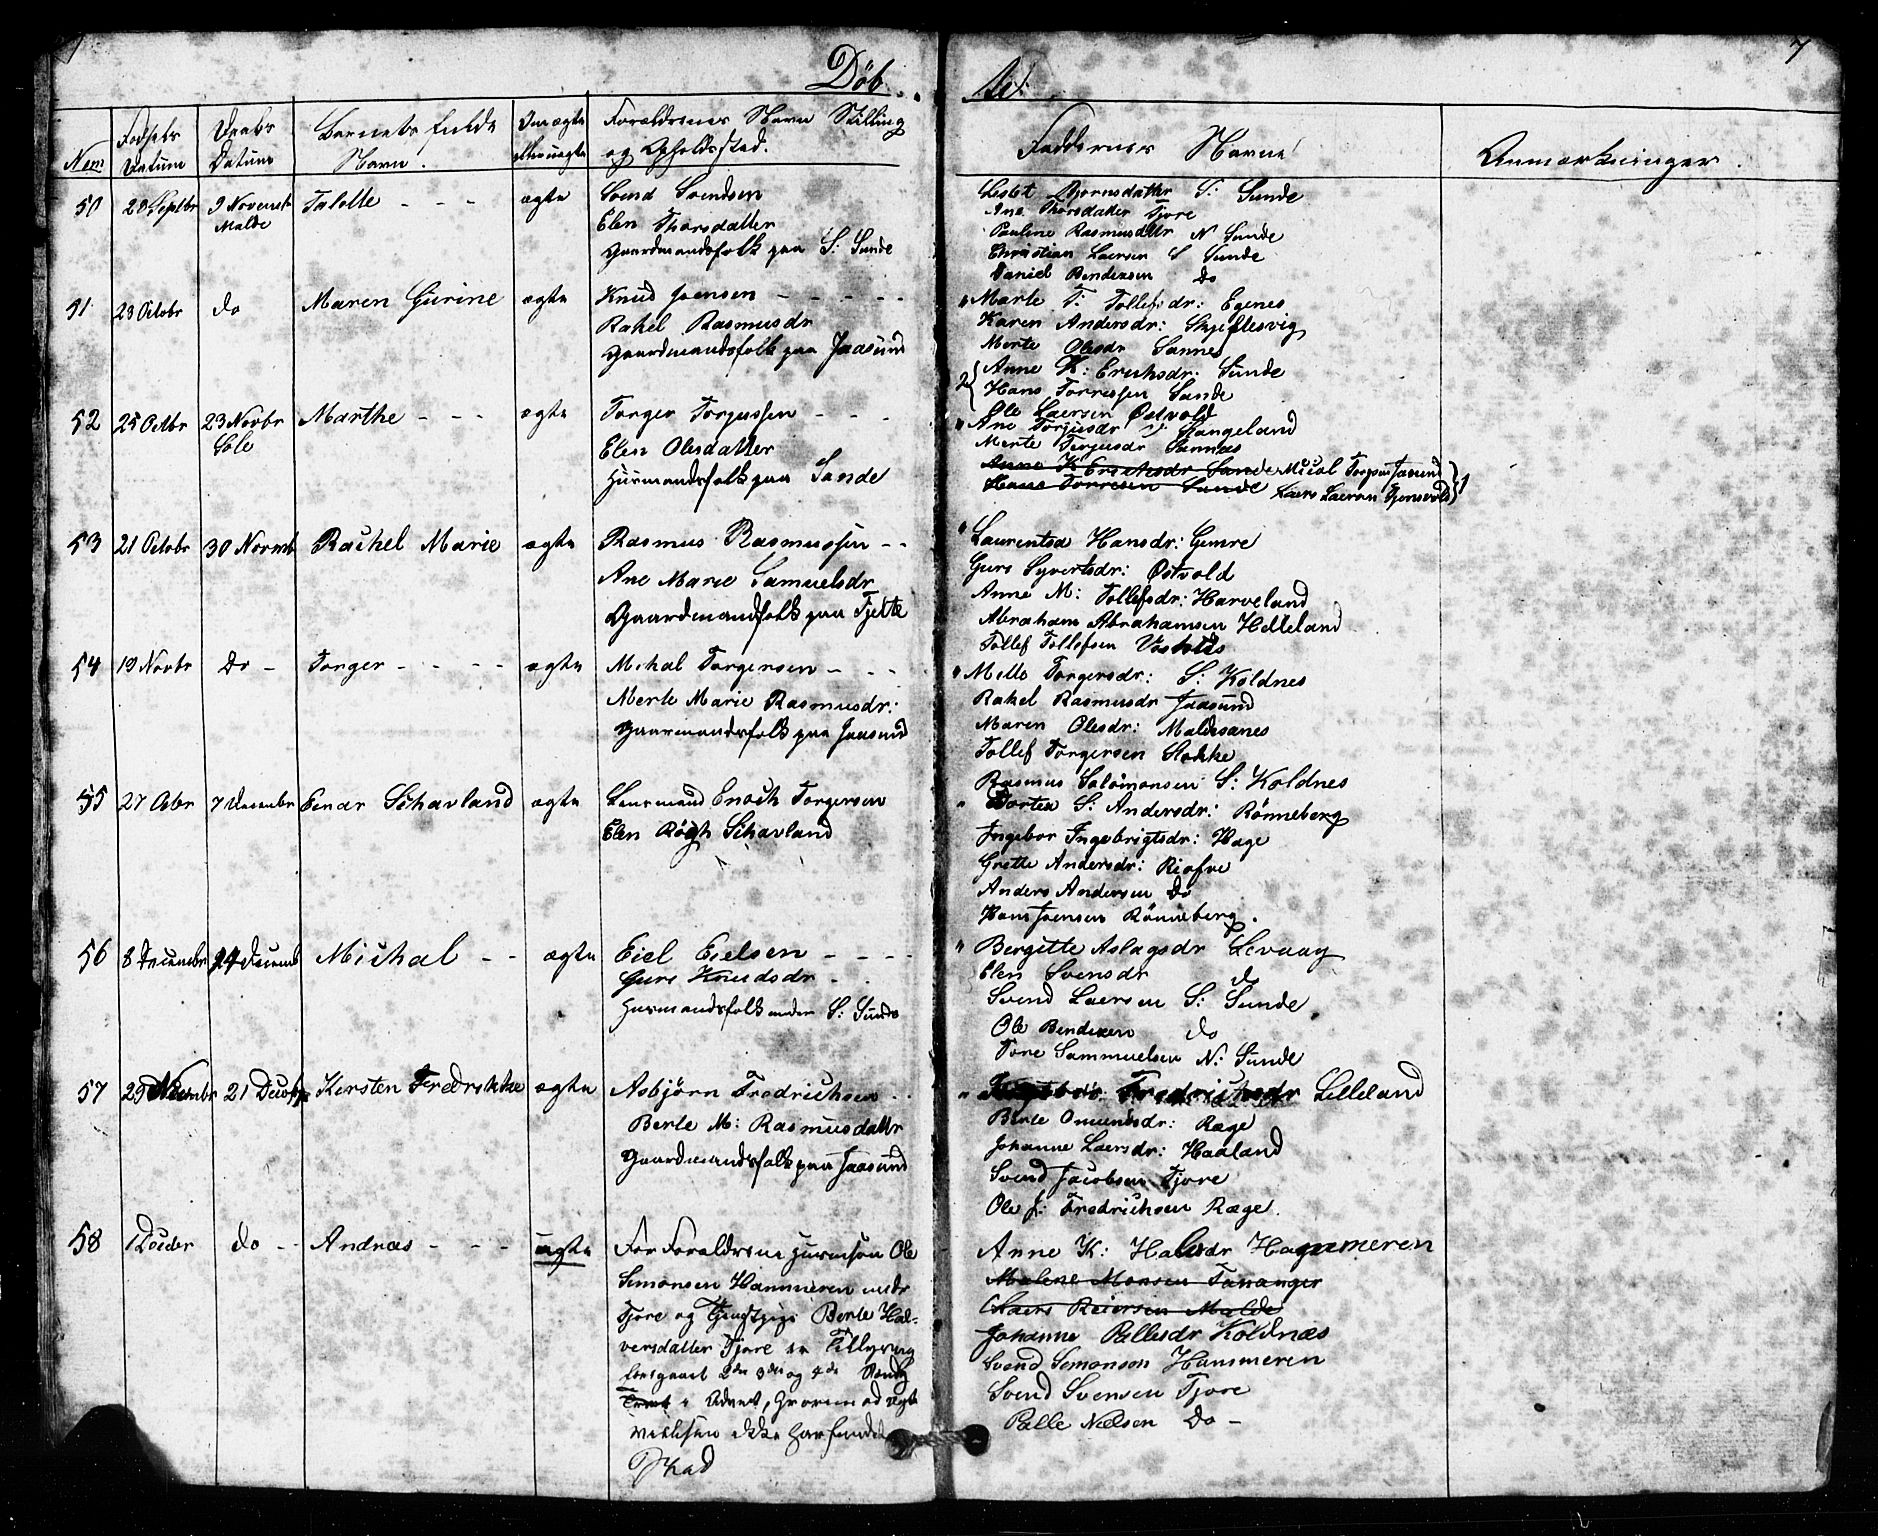 Døb te.
7
Num
Fødsels Datum
Daabs Datum
Barnets fulde Navn.
Om ægte eller uægte
Forældrenes Navn Stilling og Opholdssted.
Faddernes Navne
Anmærkninger.
50 20 Septbr 9 Novemb Malde Talette - - - ægte
Svend Svendsen
Elen Thorsdatter
Gaardmandsfolk paa S: Sunde
Bjørnsdatter S: Sunde
Ane Thorsdatter Tjore
Pauline Rasmusdttr N Sunde
Christian Laersen S Sunde
Daniel Bendixsen Do
51 23 Octobr do Maren Gurine ægte
Knud Joensen - - - - -
Rakel Rasmusdr
Gaardmandsfolk paa Jaasund
Marte T: Tollefsdr: Egenes
Karen Andersdr: Skjeflesvig
Merte Olesdr Sannes
2 { Anne K: Erichsdr: Sunde
Hans Torressen Sunde
Ole Laersen Østvold
52 25 Octbr 23 Novbr Sole Marthe - - - ægte
Torger Torjussen - - -
Elen Olesdatter
Huusmandsfolk paa Sande
Ane Torjusdr Hangeland
Merte Torjusdr Sannes
Anne K Erichsdr Sunde Micol Jaasund } 1
Hans Torresen Sunde Laers Laersen
53 21 Octobr 30 Novmb Rachel Marie ægte
Rasmus Rasmussen - -
Ane Marie Samuelsdr
Gaardmandfolk paa Tjelte
Laurentsa Hansdr: Gimre
Guri Syvertsdr: Østvold
Anne M: Tollefsdr: Harveland
Abraham Abrahamsen Helleland
Tollef Tollefsen
54 19 Novbr Do - Torger - - - - ægte
Mikal Torgersen - - -
Merte Marie Rasmusdr:
Gaarmandsfolk paa Jaasund
Mette Torgersdr: S: Koldnes
Rakel Rasmusdr Jaasund
Maren Olesdr: Maldesanes
Tollef Torgersen Stokke
Rasmus Salomonsen S: Koldnes
55 27 Octbr 7 Decembr Einar Schavland ægte
Lensmand Enoch Torgersen
Elen Røgh Schavland
Dortea S: Andersdr: Rönneberg
Ingebor Ingebrigtsdr: Hage
Grette Andersdr: Risfve
Anders Andersen Do
Hans Joensen Rönneberg.
56 8 Decembr 24 Decemb Michal - - ægte
Eiel Eielsen - - - -
Guri Knudsdr - .
Husmandsfolk under S: Sunde
Bergitte Aslagsdr Levaag
Elen Svensdr do
Svend Laersen S: Sunde
Ole Bendixen do
Tore Sammuelsen N: Sunde
57 29 Novembr 21 Decbr Kirsten Fredrikke ægte
Asbjörn Fredrichsen . .
Berte M: Rasmusdattr
Gaardmandsfolk paa Jaasund
Fredrichsdr Lilleland
Berte Omundsdr: Ræge
Johanne Laersdr: Haaland
Svend Jacobsen Tjore
Ole J: Fredrichsen Ræge.
58 1 Decbr do - - Andreas - - - uægte
For Forældrene Husmson Ole
Simonsen Hammeren undr
Tjore og Tjenstpige Berte Hal-
versdatter Tjore er Tillysning
foregaaet 2de 3de og 4de Søndg
i Advent, hvorimod Ægte
vielsen ikke har fundet
Sted
Anne K: Halvdr Hammeren
Malene Monsen Tananger
Laers Reiersen Malde
Johanne Pallesdr Koldnæs
Svend Simonsen Hammeren
Svend Svensen Tjore
Palle Nielsen Do -